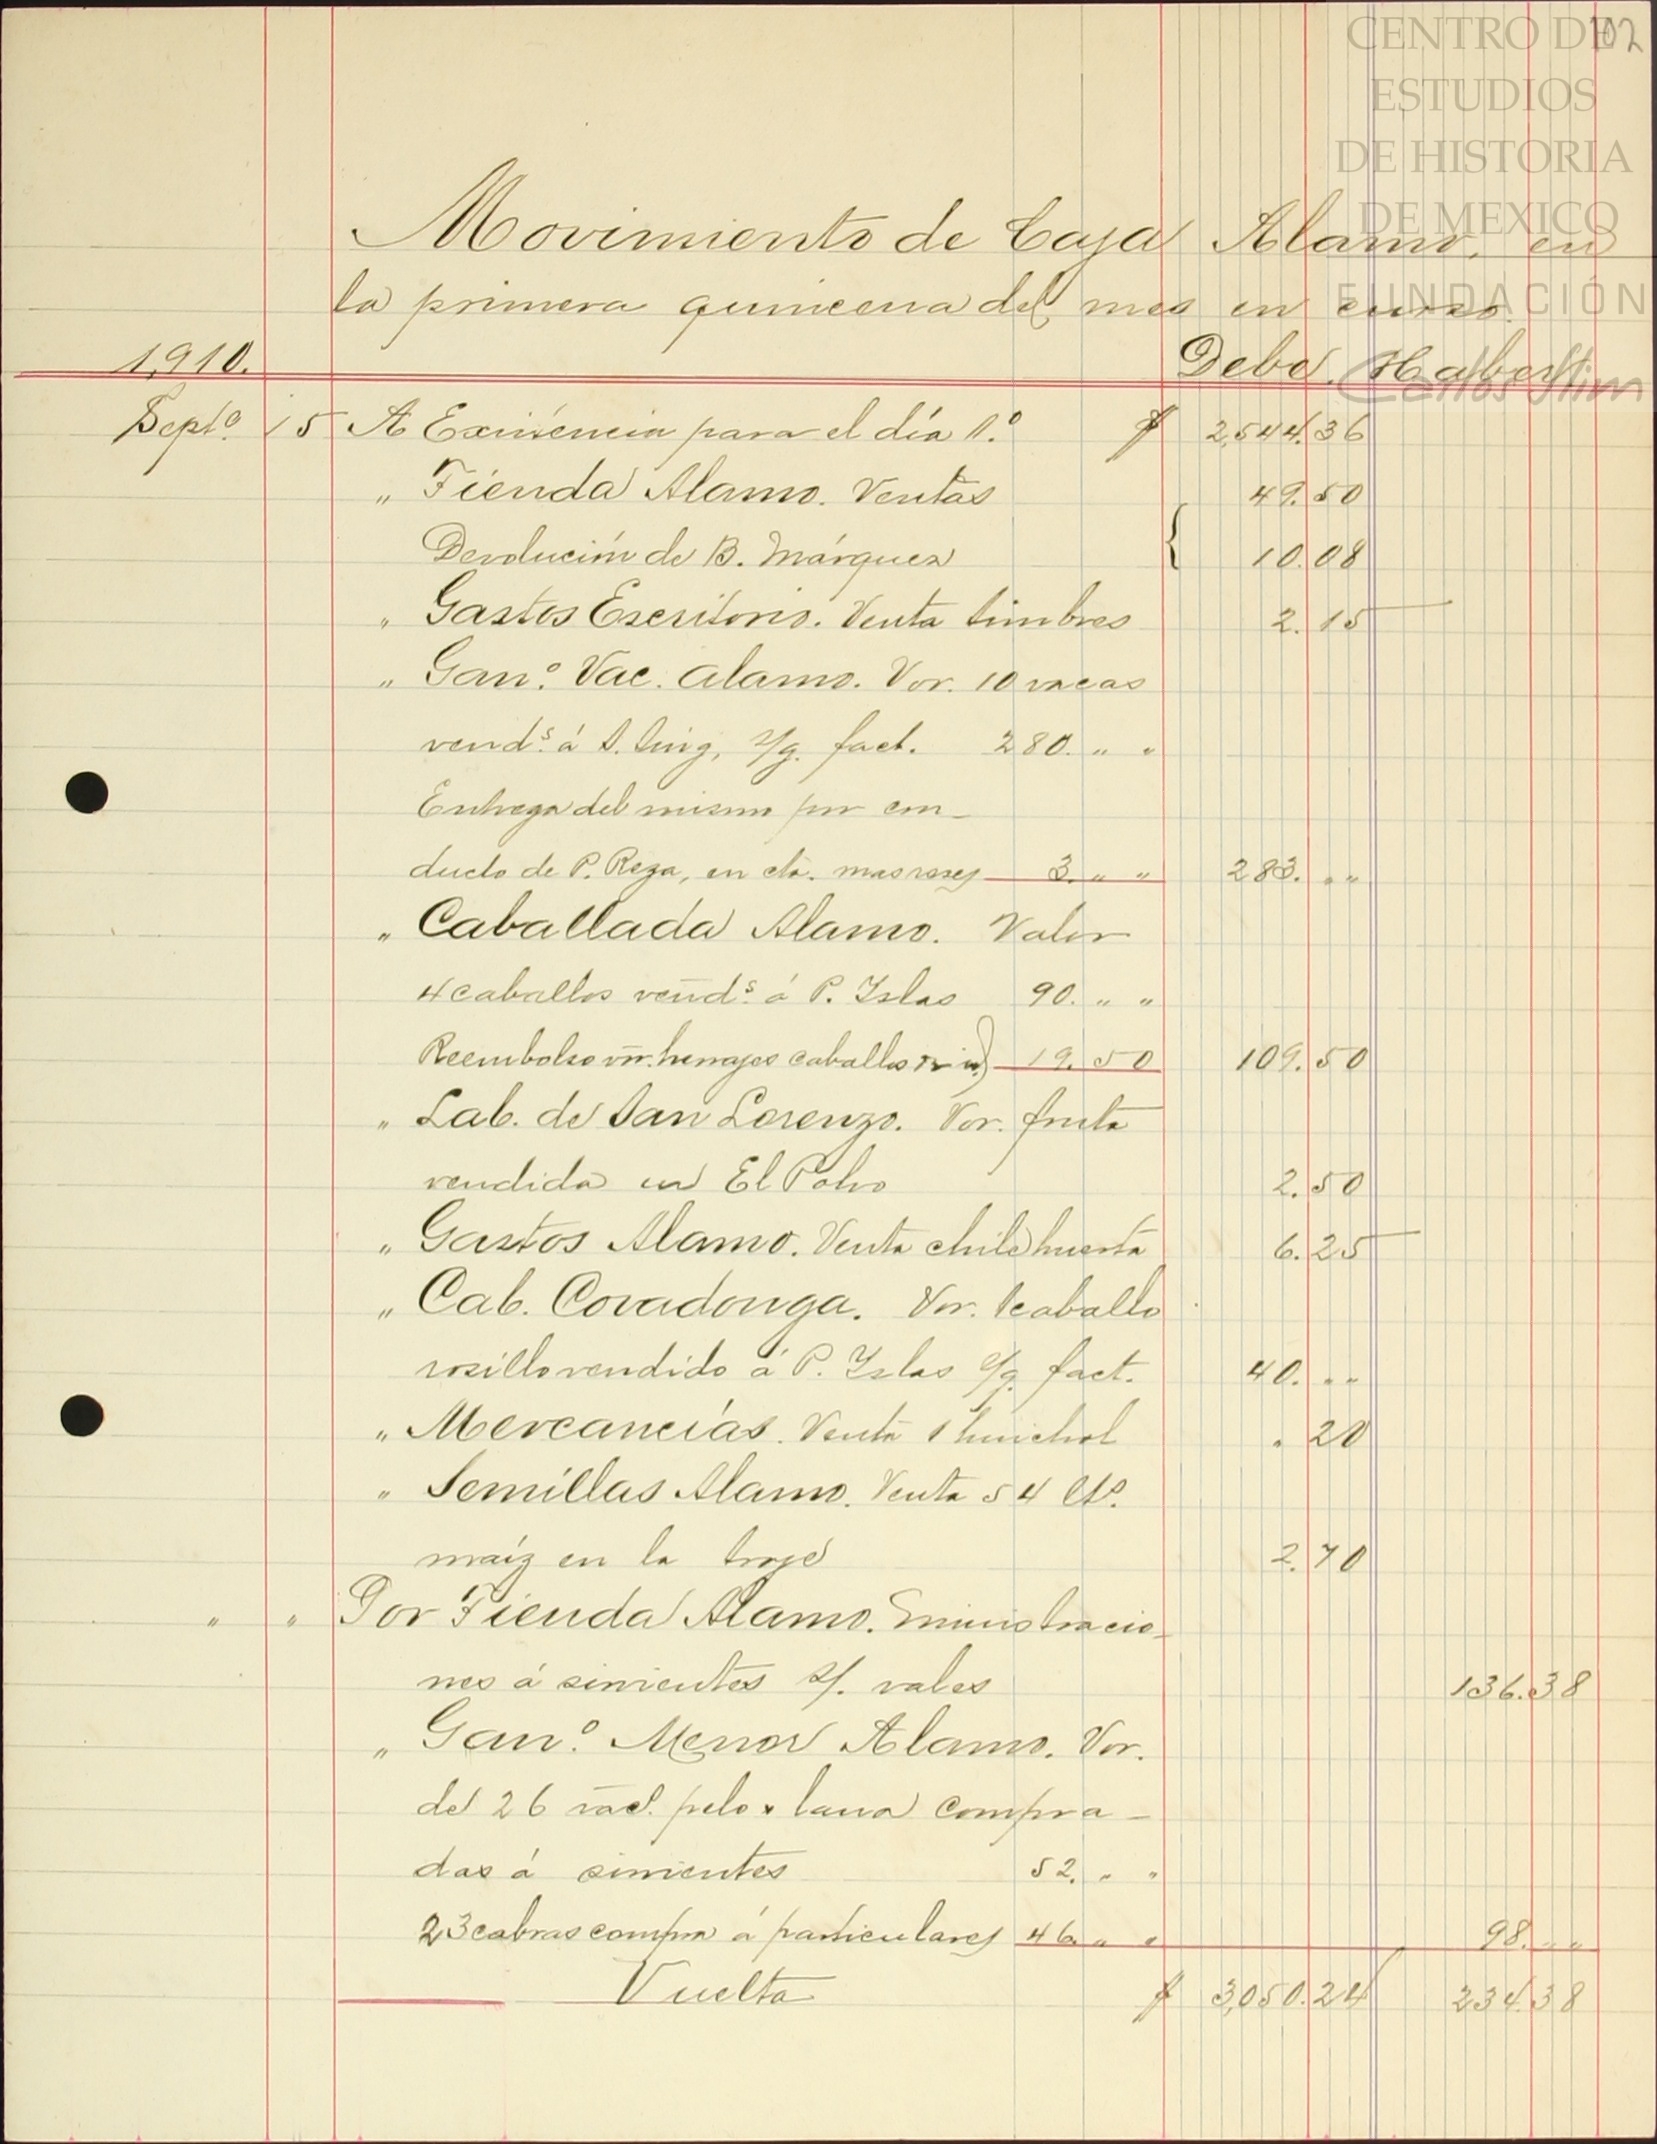 102
CENTRO DE
ESTUDIOS
DE HISTORIA
DE MEXICO
FUNDACIÓN
Carlos Slim
Movimiento de Caja Alamo, en
la primera quincena del mes en curso.
1,910. Debe. Haber.
Septo. 15 A Existencia para el día 1.º $ 2,544.36
" Tienda Alamo. Ventas 49.50
Devolución de B. Márquez { 10.08
" Gastos Escritorio. Venta timbres 2.15
" Gano. Vac. Alamo. Vor. 10 vacas
vends. á S. Sing, s/g. fact. 280. " "
Entrega del mismo por con-
ducto de P. Reza, en cta. mas reses 3. " " 283. " "
" Caballada Alamo. Valor
4 caballos vends. á P. Islas 90. " "
Reembolso vr. herrajes caballos 19.50 109.50
" Lab. de San Lorenzo. Vor. fruta
vendida en El Polvo 2.50
" Gastos Alamo. Venta chile huerta 6.25
" Cab. Covadonga. Vor. 1 caballo
rosillo vendido á P. Islas s/g. fact. 40. " "
" Mercancías. Venta 1 huichol " 20
" Semillas Alamo. Venta 54 lts.
maíz en la troje 2.70
" " Por Tienda Alamo. Sministracio-
nes á sirvientes s/. vales 136.38
" Gano. Menor Alamo. Vor.
de 26 pelo y lana compra-
das á sirvientes 52. " "
23 cabras compra á particulares 46. " " 98. " "
Vuelta $ 3,050.24 234.38